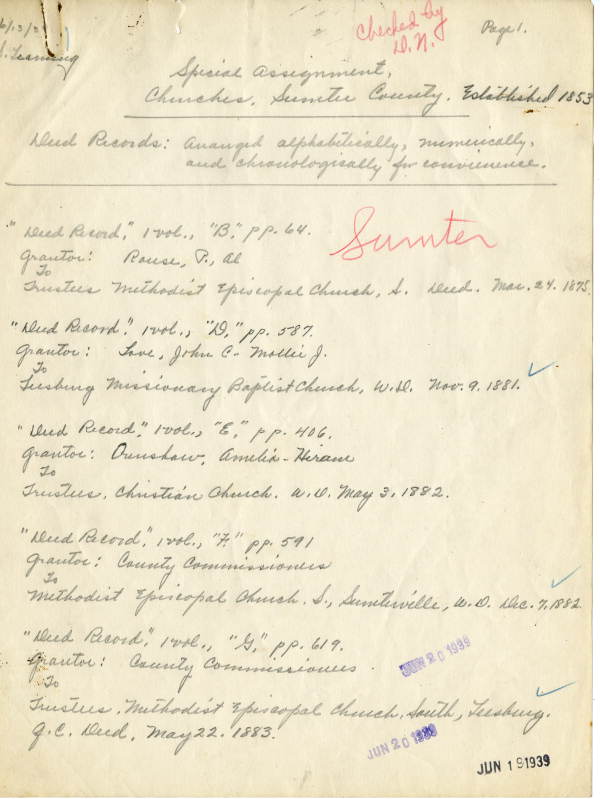 Checked by
D. N.
Page 1.
Special Assignment,
Churches, Sumter County. Established 1853
Deed Records: Arranged alphabetically, numerically,
and chronologically for convienence.
Sumter
"Deed Record," 1 vol., "B," pp. 64.
Grantor: Rouse, P., Al
To
Trustees Methodist Episcopal Church, S. Deed. Mar. 24. 1875.
"Deed Record." 1 vol., "D," pp. 587.
Grantor: Love, John C. - Mollie J.
To
Leesburg Missionary Baptist Church, W.D. Nov. 9. 1881.
"Deed Record," 1 vol., "E," pp. 406.
Grantor: Orenshaw, Amelia - Hiram
To
Trustees, Christian Church. W.D. May 3, 1882.
"Deed Record", 1 vol., "F." pp. 591
Grantor: County Commissioners
To
Methodist Episcopal Church. S., Sumterville, W.D. Dec. 7, 1882
"Deed Record," 1 vol., "G," pp. 619.
Grantor: County Commissioners.
To
Trustees, Methodist Episcopal Church, South, Leesburg.
Q.C. Deed, May 22. 1883.
JUN 20 1939
JUN 20 1939
JUN 19 1939